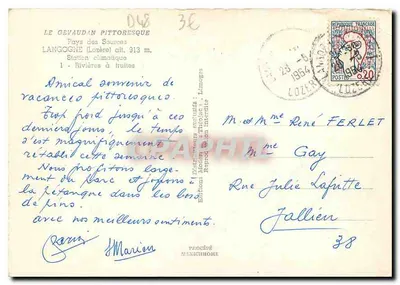 D48
3€
LE GEVAUDAN PITTORESQUE
Pays des Sources
LANGOGNE (Lozère) alt. 913 m.
Station climatique
1 - Rivières à truites
Amical souvenir de
vacances pittoresques
Trop froid jusqu'à ces
derniers jours, le temps
s'est magnifiquement
rétabli cette semaine.
Nous profitons largement
du parc et jouons à
la pétanque dans les bois
de pins.
avec nos meilleurs sentiments.
Marion
REPUBLIQUE FRANÇAISE
0,20
28 -6
1964
M et Mme René FERLET
Mme Gay
Rue Julie Lafritte
Jallieu
38